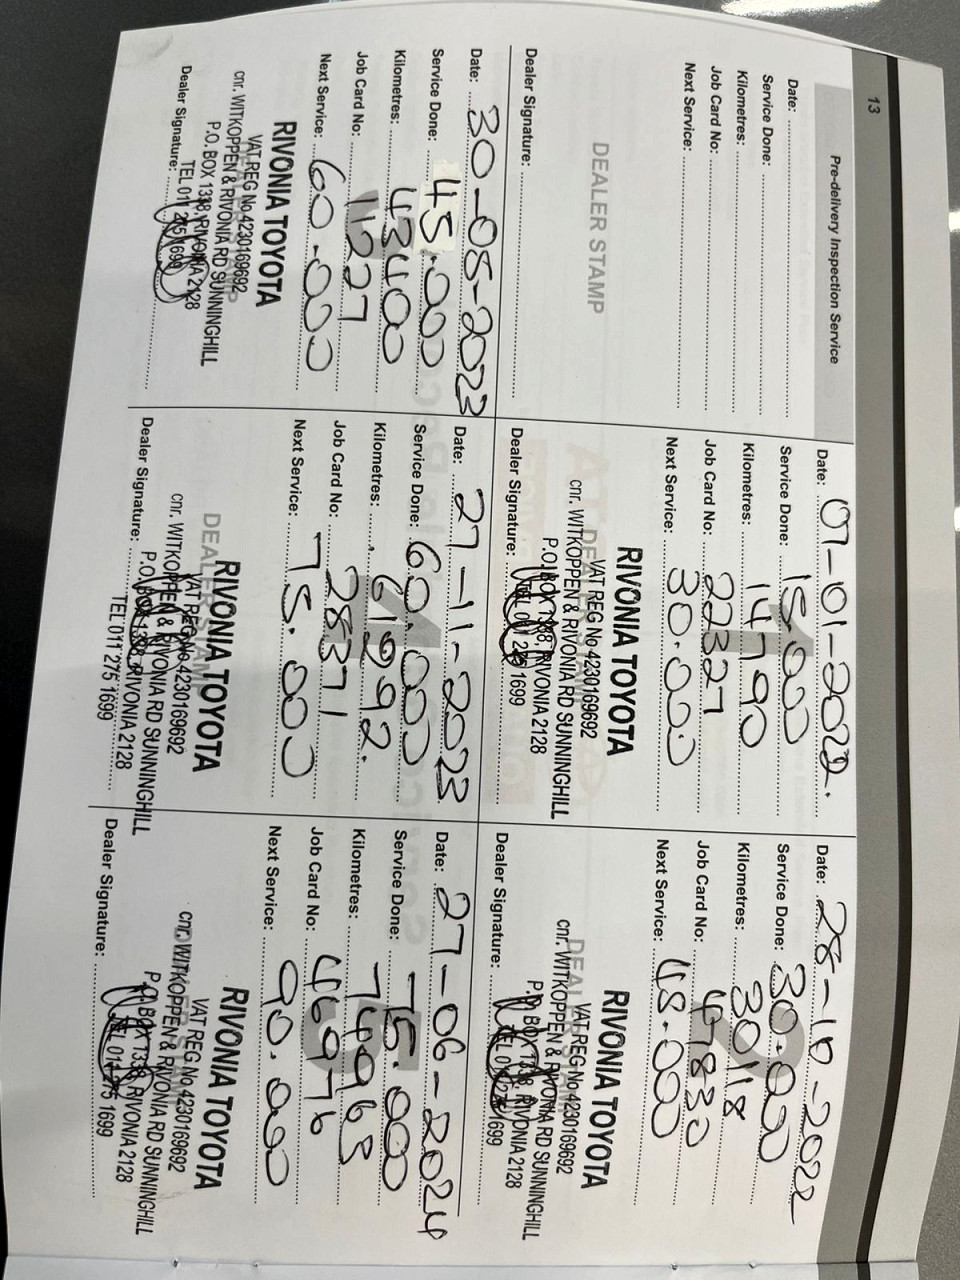 13
Pre-delivery Inspection Service
Date:
Service Done:
Kilometres:
Job Card No:
Next Service:
DEALER STAMP
Dealer Signature:
Date: 07-01-2022.
Service Done: 15.000
1
Kilometres: 14790
Job Card No: 22327
Next Service: 30.000
RIVONIA TOYOTA
DEALER STAMP
VAT REG No 4230169692
cnr. WITKOPPEN & RIVONIA RD SUNNINGHILL
P.O. BOX 1338, RIVONIA 2128
TEL 011 275 1699
Dealer Signature:
Date: 28-10-2022
Service Done: 30.000
2
Kilometres: 30118
Job Card No: 47830
Next Service: 48.000
RIVONIA TOYOTA
DEALER STAMP
VAT REG No 4230169692
cnr. WITKOPPEN & RIVONIA RD SUNNINGHILL
P.O. BOX 1338, RIVONIA 2128
TEL 011 275 1699
Dealer Signature:
Date: 30-08-2023
Service Done: 45.000
Kilometres: 43400
Job Card No: 11227
Next Service: 60.000
RIVONIA TOYOTA
VAT REG No 4230169692
cnr. WITKOPPEN & RIVONIA RD SUNNINGHILL
P.O. BOX 1338, RIVONIA 2128
TEL 011 275 1699
Dealer Signature:
Date: 27-11-2023
Service Done: 60.000
4
Kilometres: 61992.
Job Card No: 28371
Next Service: 75.000
RIVONIA TOYOTA
DEALER STAMP
VAT REG No 4230169692
cnr. WITKOPPEN & RIVONIA RD SUNNINGHILL
P.O. BOX 1338, RIVONIA 2128
TEL 011 275 1699
Dealer Signature:
Date: 27-06-2024
Service Done: 75.000
5
Kilometres: 74963
Job Card No: 46976
Next Service: 90.000
RIVONIA TOYOTA
VAT REG No 4230169692
cnr. WITKOPPEN & RIVONIA RD SUNNINGHILL
P.O. BOX 1338, RIVONIA 2128
TEL 011 275 1699
Dealer Signature: